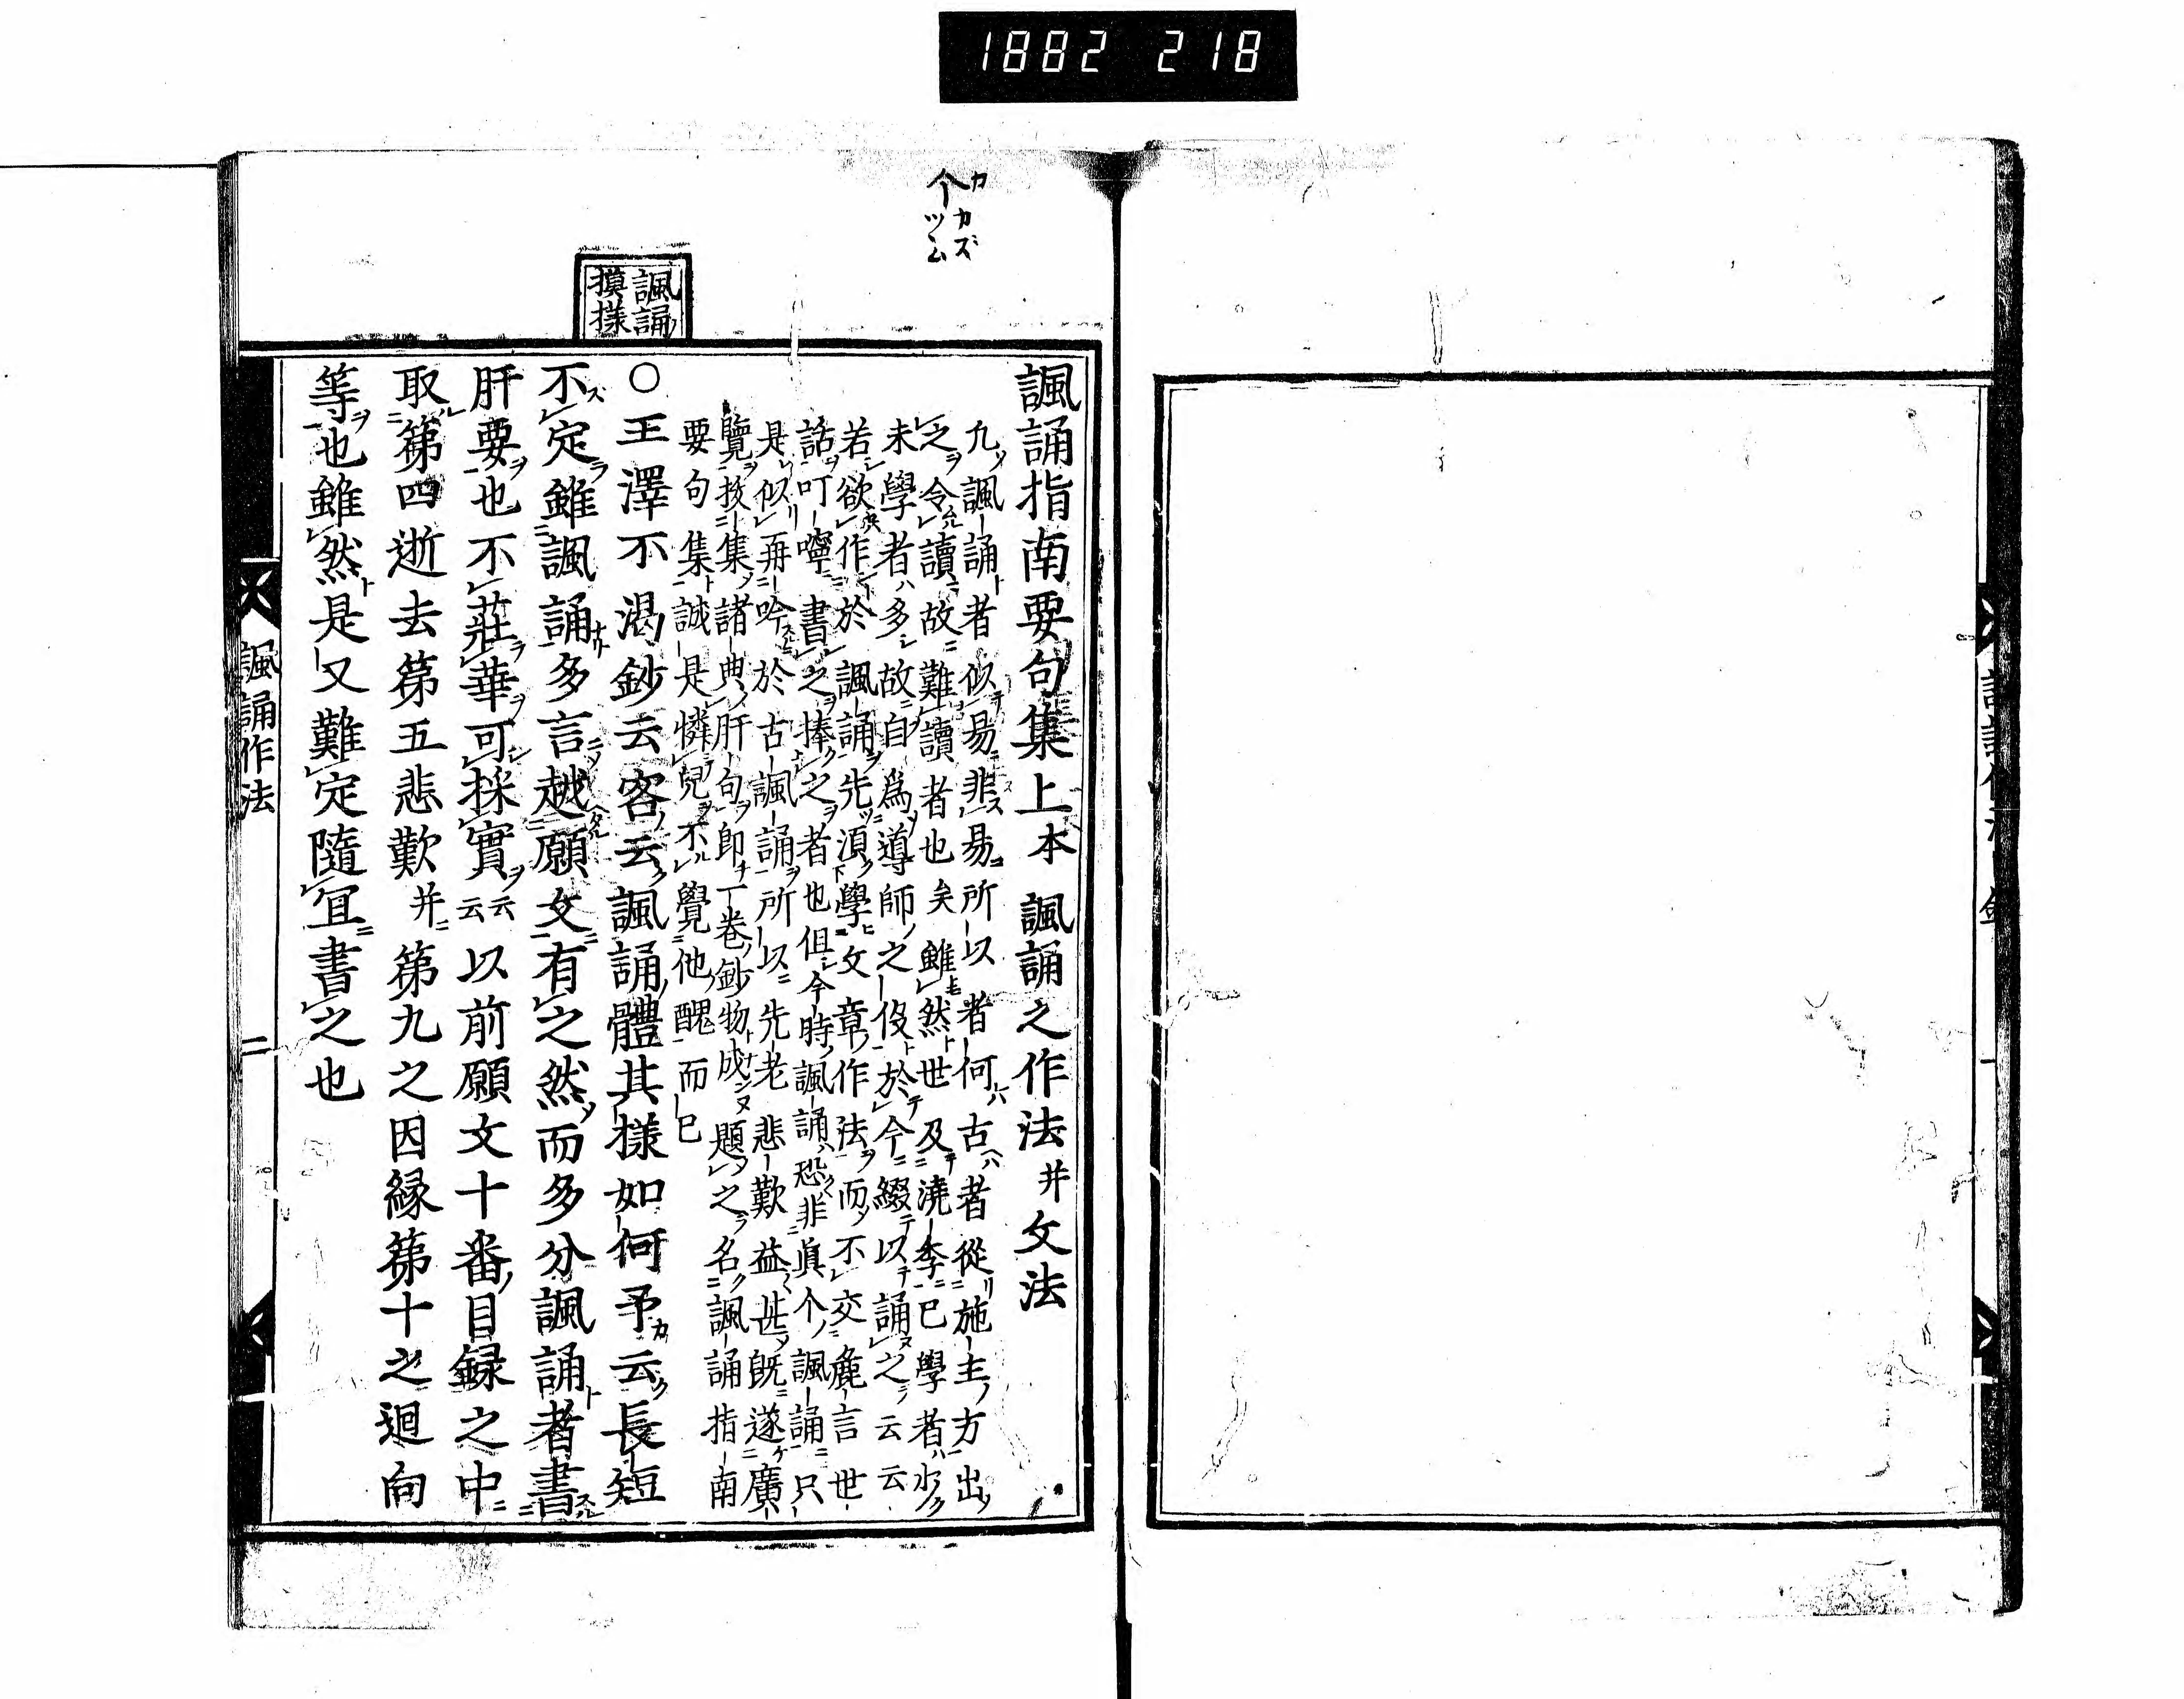 1882 218
个 カ カズ ツム
諷誦
摸様
諷誦指南要句集上本 諷誦之作法并文法
九諷誦者似易非易所以者何古者從施主方出
之令讀故難讀者也矣雖然世及澆季已學者少
未學者多故自爲導師之役於今綴以誦之云云
若欲作於諷誦先須學文章作法而不交麁言世
話叮嚀書之捧之者也但今時諷誦恐非眞个諷誦只
是似再吟於古諷誦所以先老悲歎益甚既遂廣
覽拔集諸典肝句即丁卷鈔物成題之名諷誦指南
要句集誠是憐兒不覺他醜而已
○王澤不渇鈔云客云諷誦體其樣如何予云長短
不定雖諷誦多言越願文有之然而多分諷誦者書
肝要也不莊華可採實云云以前願文十番目録之中
取第四逝去第五悲歎并第九之因縁第十之迴向
等也雖然是又難定隨宜書之也
諷誦作法
二